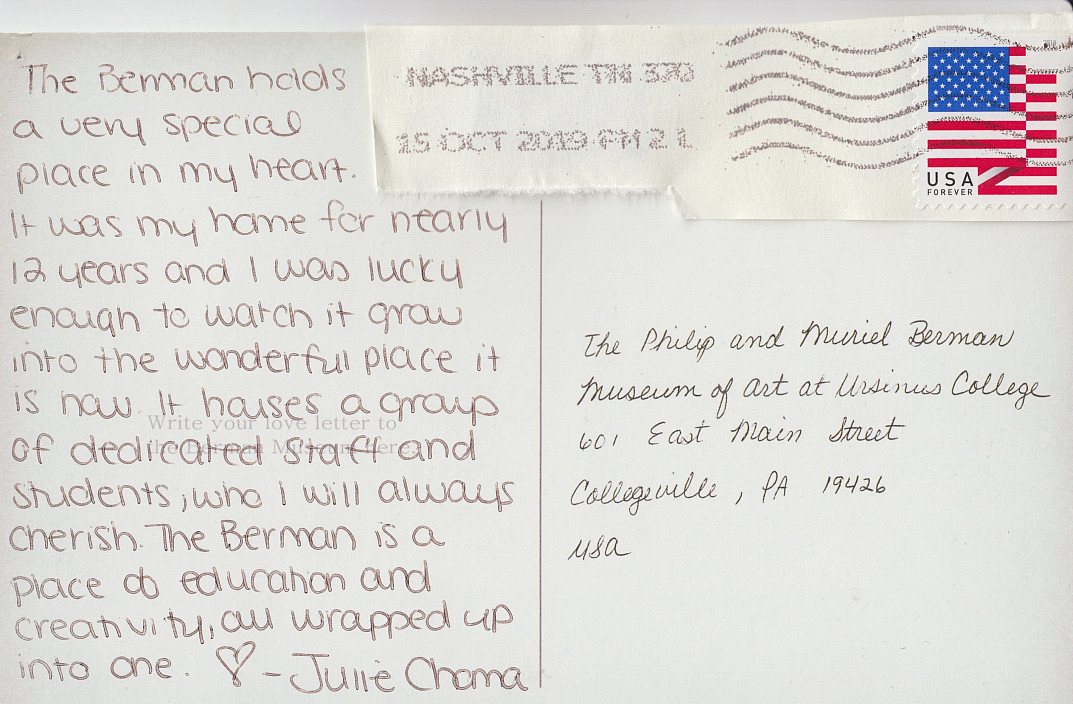 The Berman holds
a very special
place in my heart.
It was my home for nearly
12 years and I was lucky
enough to watch it grow
into the wonderful place it
is now. It houses a group
of dedicated staff and
students, who I will always
cherish. The Berman is a
place of education and
creativity, all wrapped up
into one. ♡ - Julie Choma
Write your love letter to
the Berman Museum here:
NASHVILLE TN 370
15 OCT 2019 PM 2 L
USA
FOREVER
The Philip and Muriel Berman
Museum of Art at Ursinus College
601 East Main Street
Collegeville, PA 19426
USA